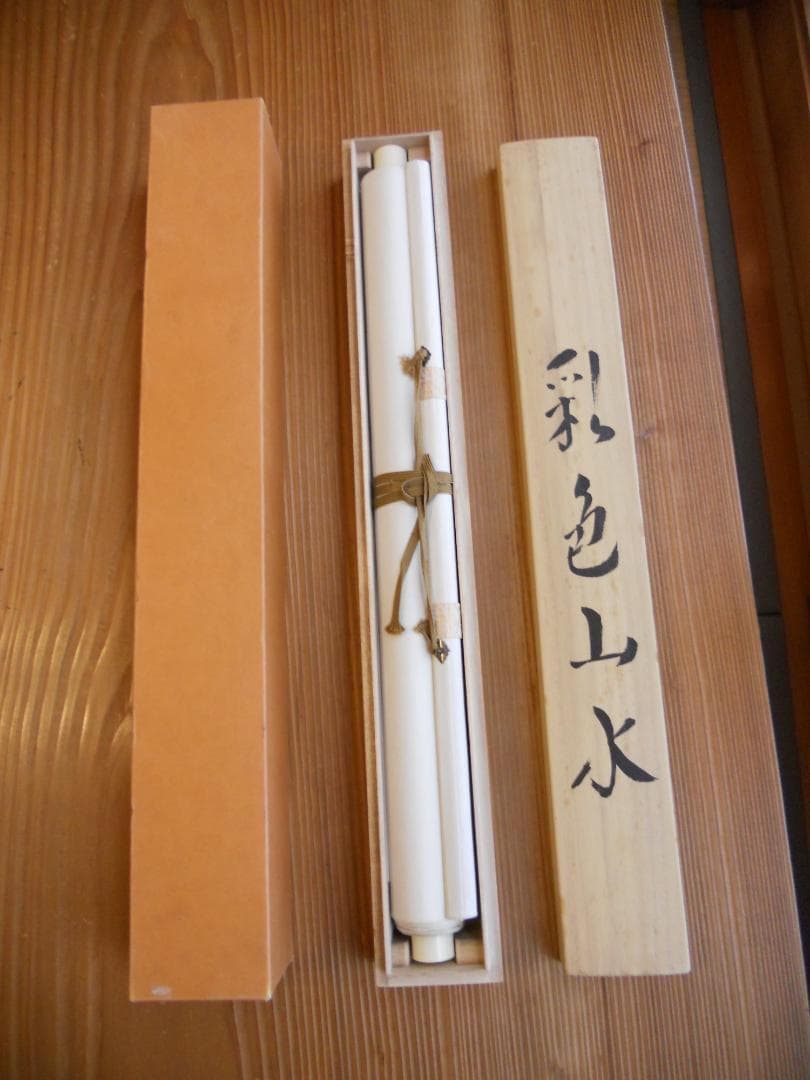 彩色山水